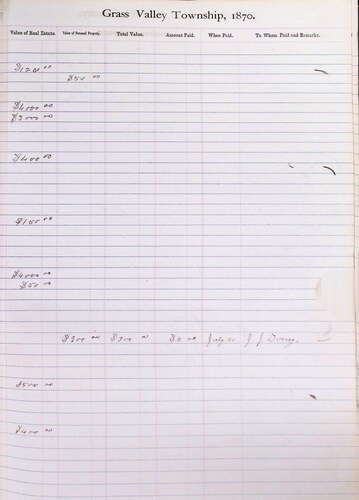 Grass Valley Township, 1870.
Value of Real Estate. Value of Personal Property. Total Value. Amount Paid. When Paid. To Whom Paid and Remarks.
$1200 00
$50 00
$400 00
$150 00
$4000 00
$50 00
$300 00 $300 00 July 20 J. J.
$500 00
$400 00